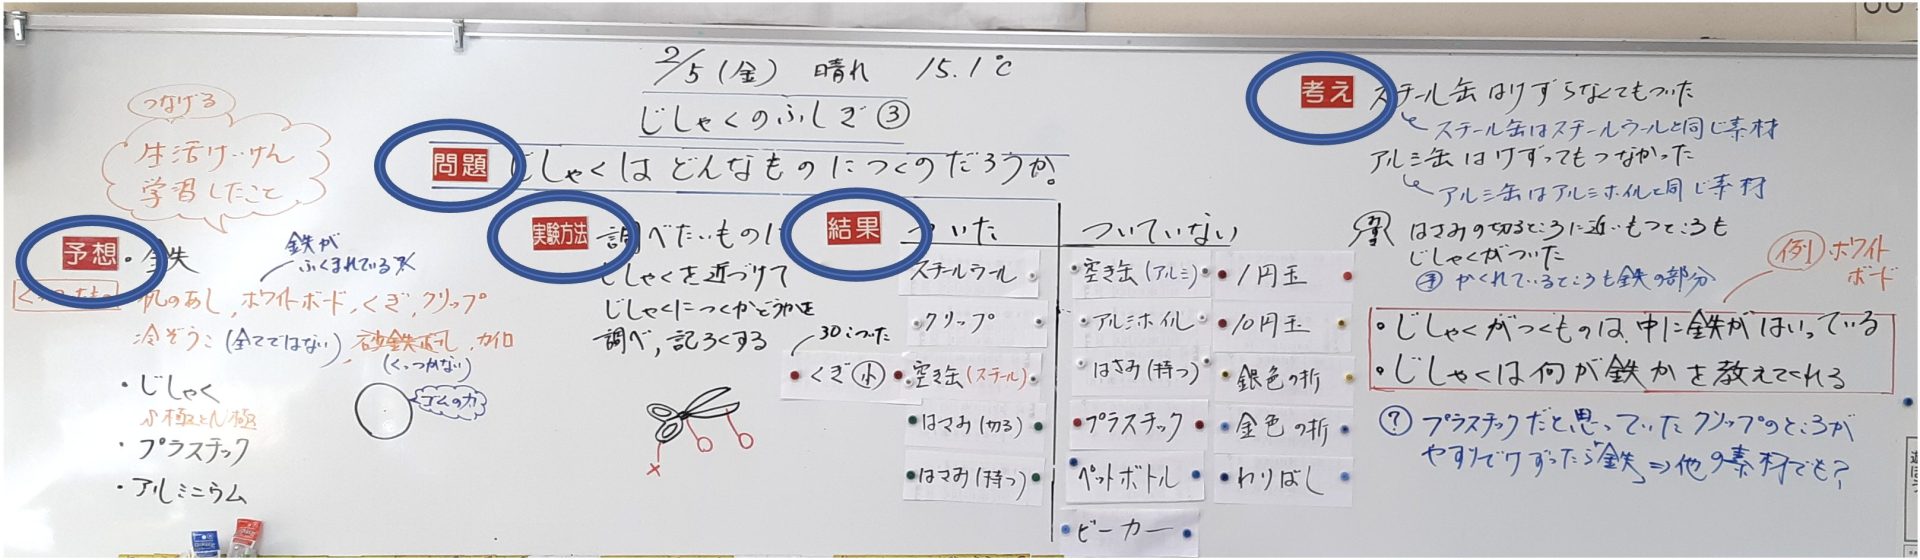 2/5(金) 晴れ 15.1℃
じしゃくのふしぎ③
問題 じしゃくはどんなものにつくのだろうか。
つなげる
生活けいけん
学習したこと
予想
・鉄
鉄が
ふくまれている
机のあし,ホワイトボード,くぎ,クリップ
冷ぞうこ(全てではない) 砂鉄 カイロ
(くっつかない)
・じしゃく
S極とN極
ゴムの力
・プラスチック
・アルミニウム
実験方法 調べたいものに
じしゃくを近づけて
じしゃくにつくかどうかを
調べ,記ろくする
結果
ついた
スチールウール
クリップ
30こついた
くぎ(小)
空き缶(スチール)
はさみ(切る)
はさみ(持つ)
ついていない
空き缶(アルミ)
アルミホイル
はさみ(持つ)
プラスチック
ペットボトル
ビーカー
1円玉
10円玉
銀色の折
金色の折
わりばし
考え スチール缶はけずらなくてもついた
スチール缶はスチールウールと同じ素材
アルミ缶はけずってもつなかった
アルミ缶はアルミホイルと同じ素材
はさみの切るところに近いもつところも
じしゃくがついた
かくれているところも鉄の部分
例 ホワイト
ボード
・じしゃくがつくものは,中に鉄がはいっている
・じしゃくは何が鉄かを教えてくれる
? プラスチックだと思っていたクリップのところが
やすりでけずったら「鉄」⇒他の素材でも?